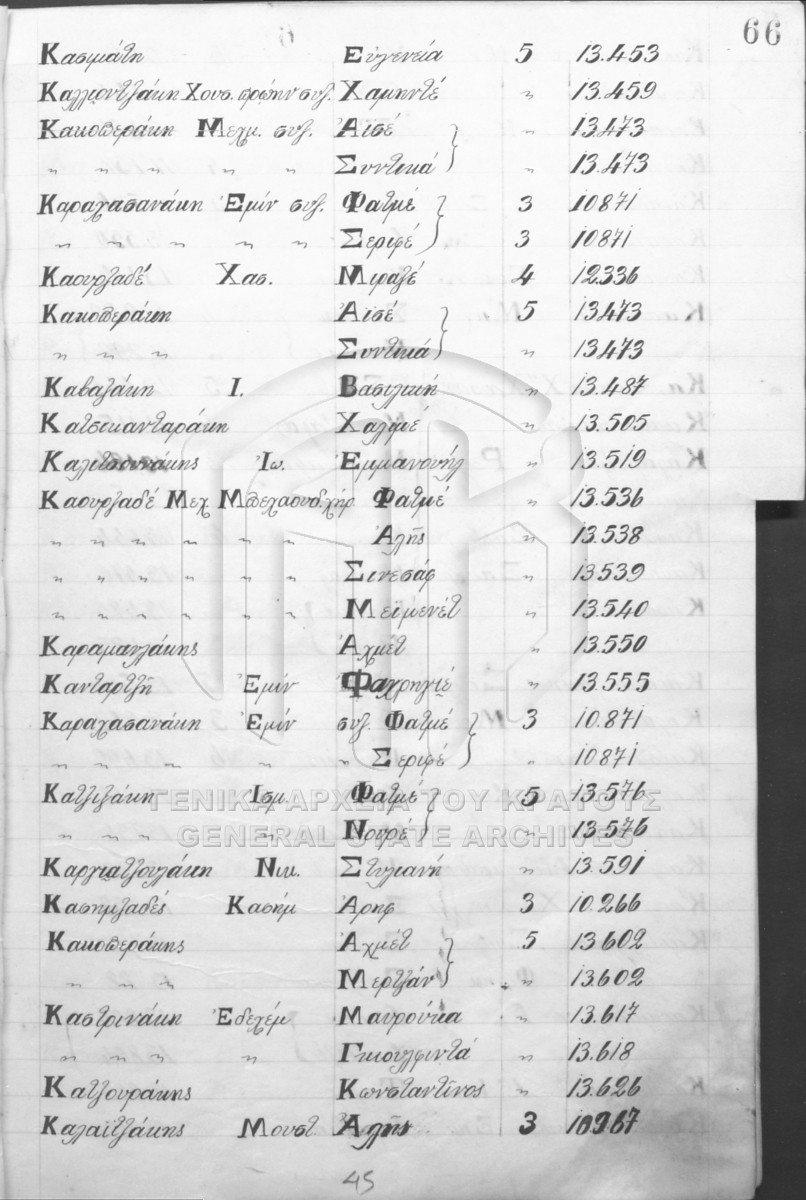 66
Κασιμάτη Εὐγενεία 5 13.453
Καλλιοντζάκη Χουσ. πρώην συζ. Χαμηντέ " 13.459
Κακοπεράκη Μεχμ. συζ. Ἀϊσέ " 13.473
" " " " " Συντικά " 13.473
Καραχασανάκη Ἐμίν συζ. Φατμέ 3 10871
" " " " " Σεριφέ 3 10871
Καουρζαδέ Χασ. Μιραζέ 4 12.336
Κακοπεράκη Ἀϊσέ 5 13.473
" " " Συντικά " 13.473
Καβαλάκη Ι. Βασιλική " 13.487
Κατσικανταράκη Χαλιμέ " 13.505
Καλιτσουνάκης Ἰω. Ἐμμανουήλ " 13.519
Καουρζαδέ Μεχ. Φατμέ " 13.536
" " " " " " Ἀλῆς " 13.538
" " " " " " Σινεσάφ " 13539
" " " " " " Μεϊμενέτ " 13.540
Καραμανλάκης Ἀχμέτ " 13.550
Κανταρτζῆ Ἐμίν Φαχρηγιέ " 13.555
Καραχασανάκη Ἐμίν συζ. Φατμέ 3 10.871
" " " " " Σεριφέ " 10871
Κατζιζάκη Ἰσμ. Φατμέ 5 13.576
" " " " Νουρέ " 13.576
Καργιατζουλάκη Νικ. Στυλιανή " 13.591
Κασημζαδές Κασήμ Ἀρηφ 3 10.266
Κακοπεράκης Ἀχμέτ 5 13602
" " " Μερτζάν " 13.602
Καστρινάκη Ἐδεχέμ Μαυρούκα " 13.617
" " " " Γκιουλφιντά " 13.618
Κατζουράκης Κωνσταντῖνος " 13.626
Καλαϊτζάκης Μουστ. Ἀλῆς 3 10967
45
ΓΕΝΙΚΑ ΑΡΧΕΙΑ ΤΟΥ ΚΡΑΤΟΥΣ
GENERAL STATE ARCHIVES